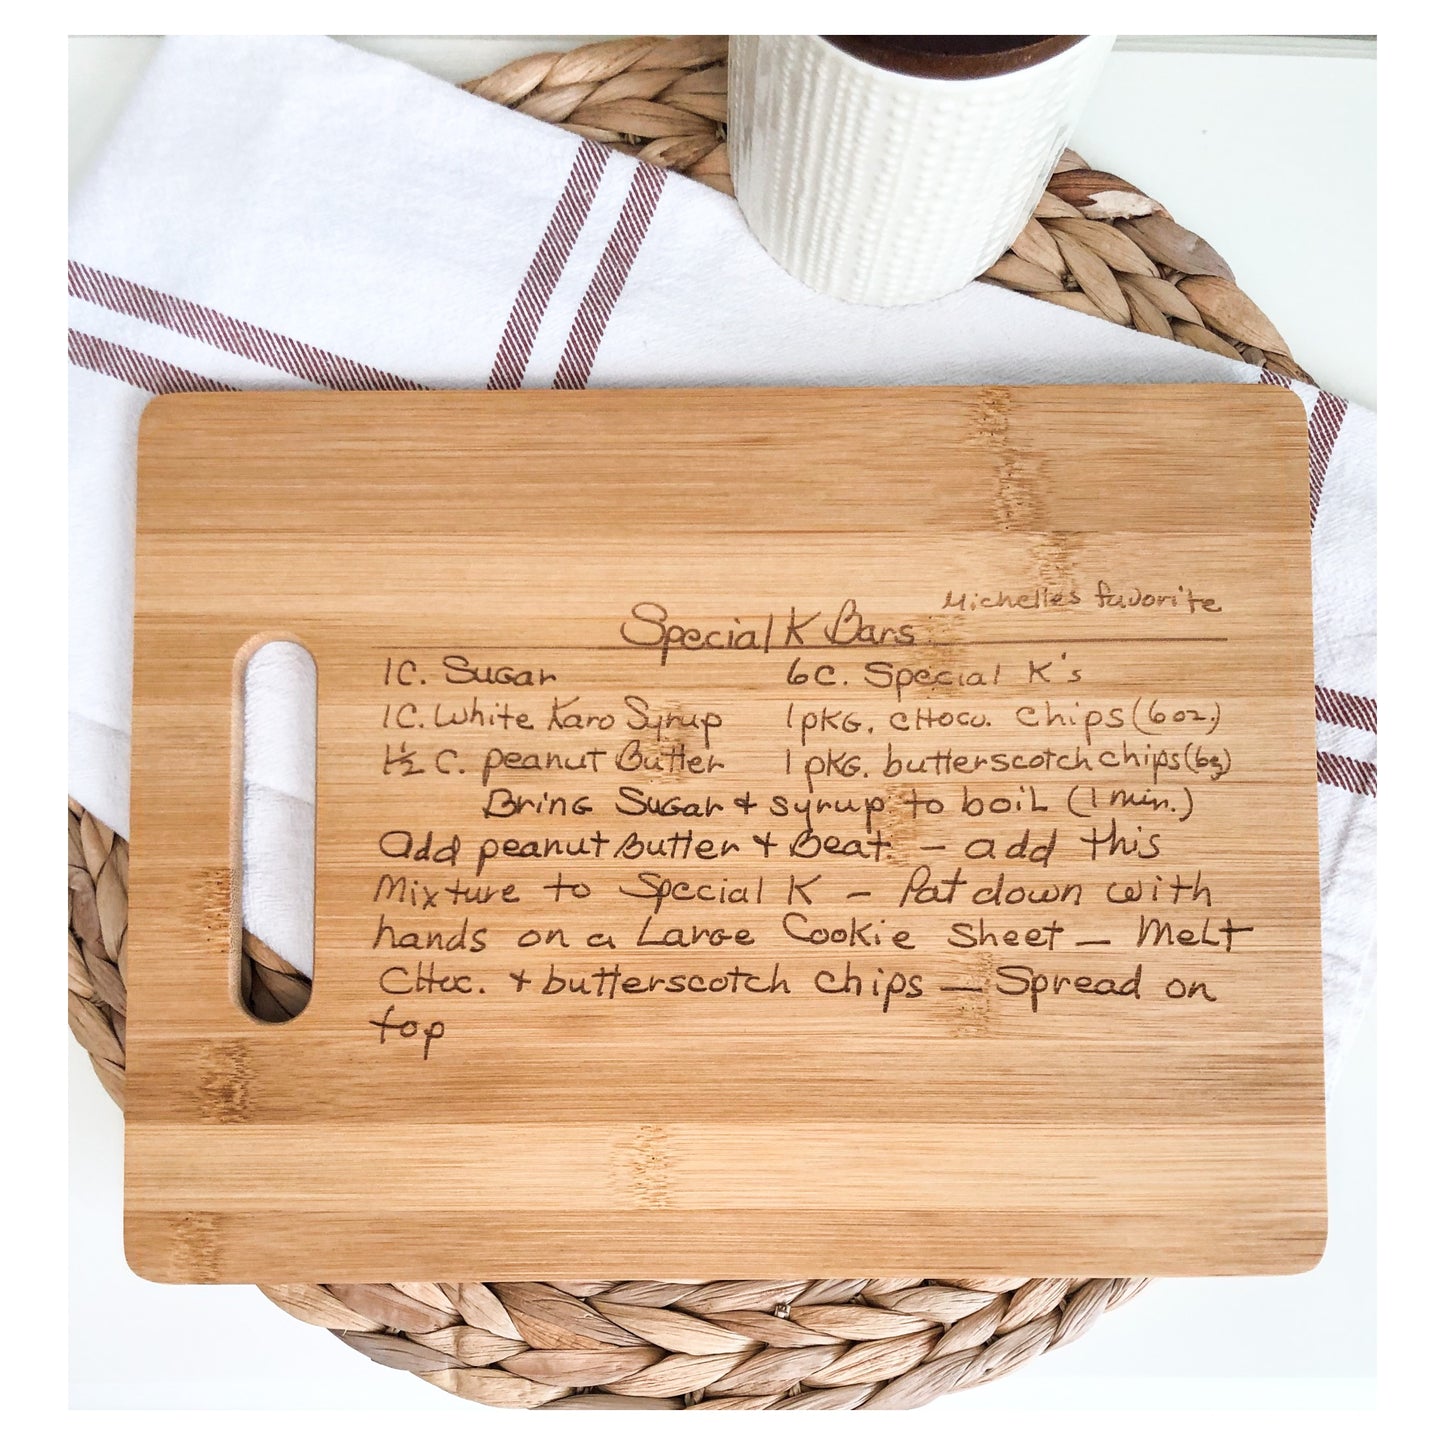 Michelles favorite
Special K Bars
1C. Sugar 6C. Special K's
1C. White Karo Syrup 1 pKG. CHoco. Chips (6 oz.)
1½ C. peanut Butter 1 pKG. butterscotch chips (6oz)
Bring Sugar + syrup to boil (1 min.)
Add peanut Butter + Beat - add this
Mixture to Special K - Pat down with
hands on a Large Cookie Sheet - Melt
CHoc. + butterscotch chips - Spread on
top